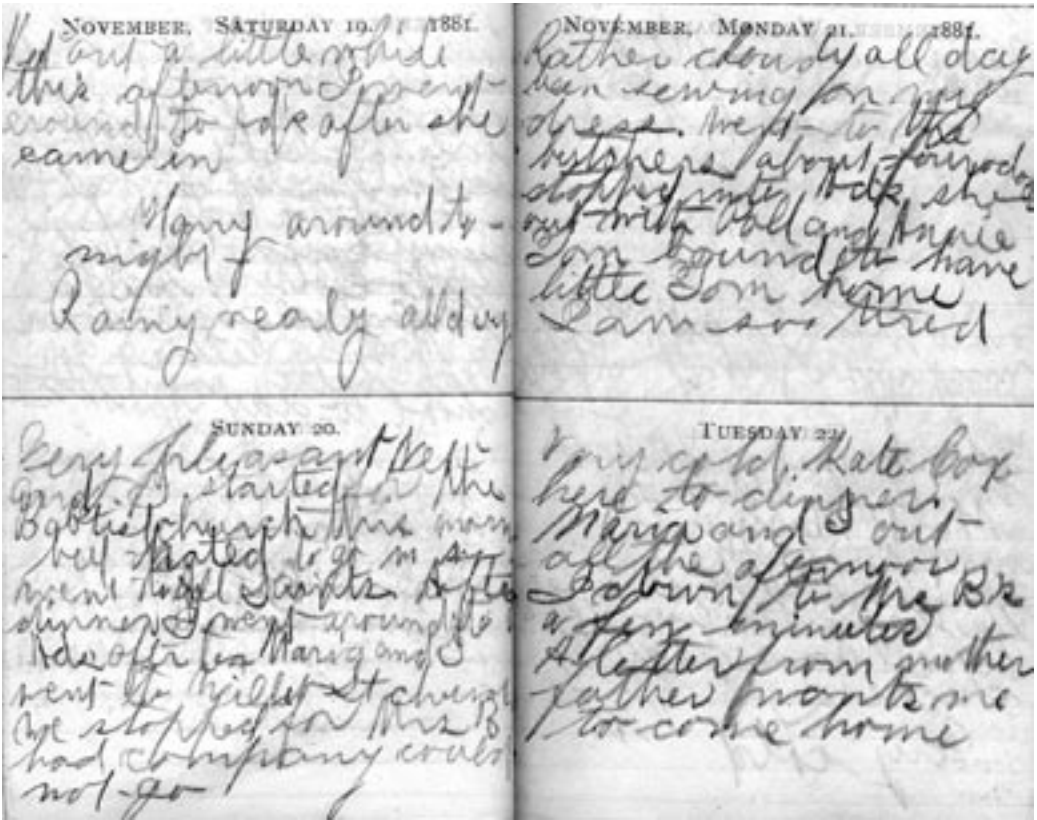 NOVEMBER, SATURDAY 19. 1881.
out a little while
this afternoon I went
around to after she
came in
Harry around to-
night
Rainy nearly all day
SUNDAY 20.
Very pleasant Nell
and I started for the
Babtist church this morn
but hated to go in so
went to All Saints After
dinner I went around to
Maria and I
went to Willet St church
we stopped for Mrs B
had company could
not go
NOVEMBER, MONDAY 21. 1881.
Rather cloudy all day
been sewing on my
dress. Went to the
butchers about four
stopped into she
out with and Annie
Tom bound to have
little Tom home
I am so tired
TUESDAY 22.
Very cold, Kate Cox
here to dinner.
Maria and I out
all the afternoon
I down to Mrs B's
a few minutes
A letter from mother
father wants me
to come home